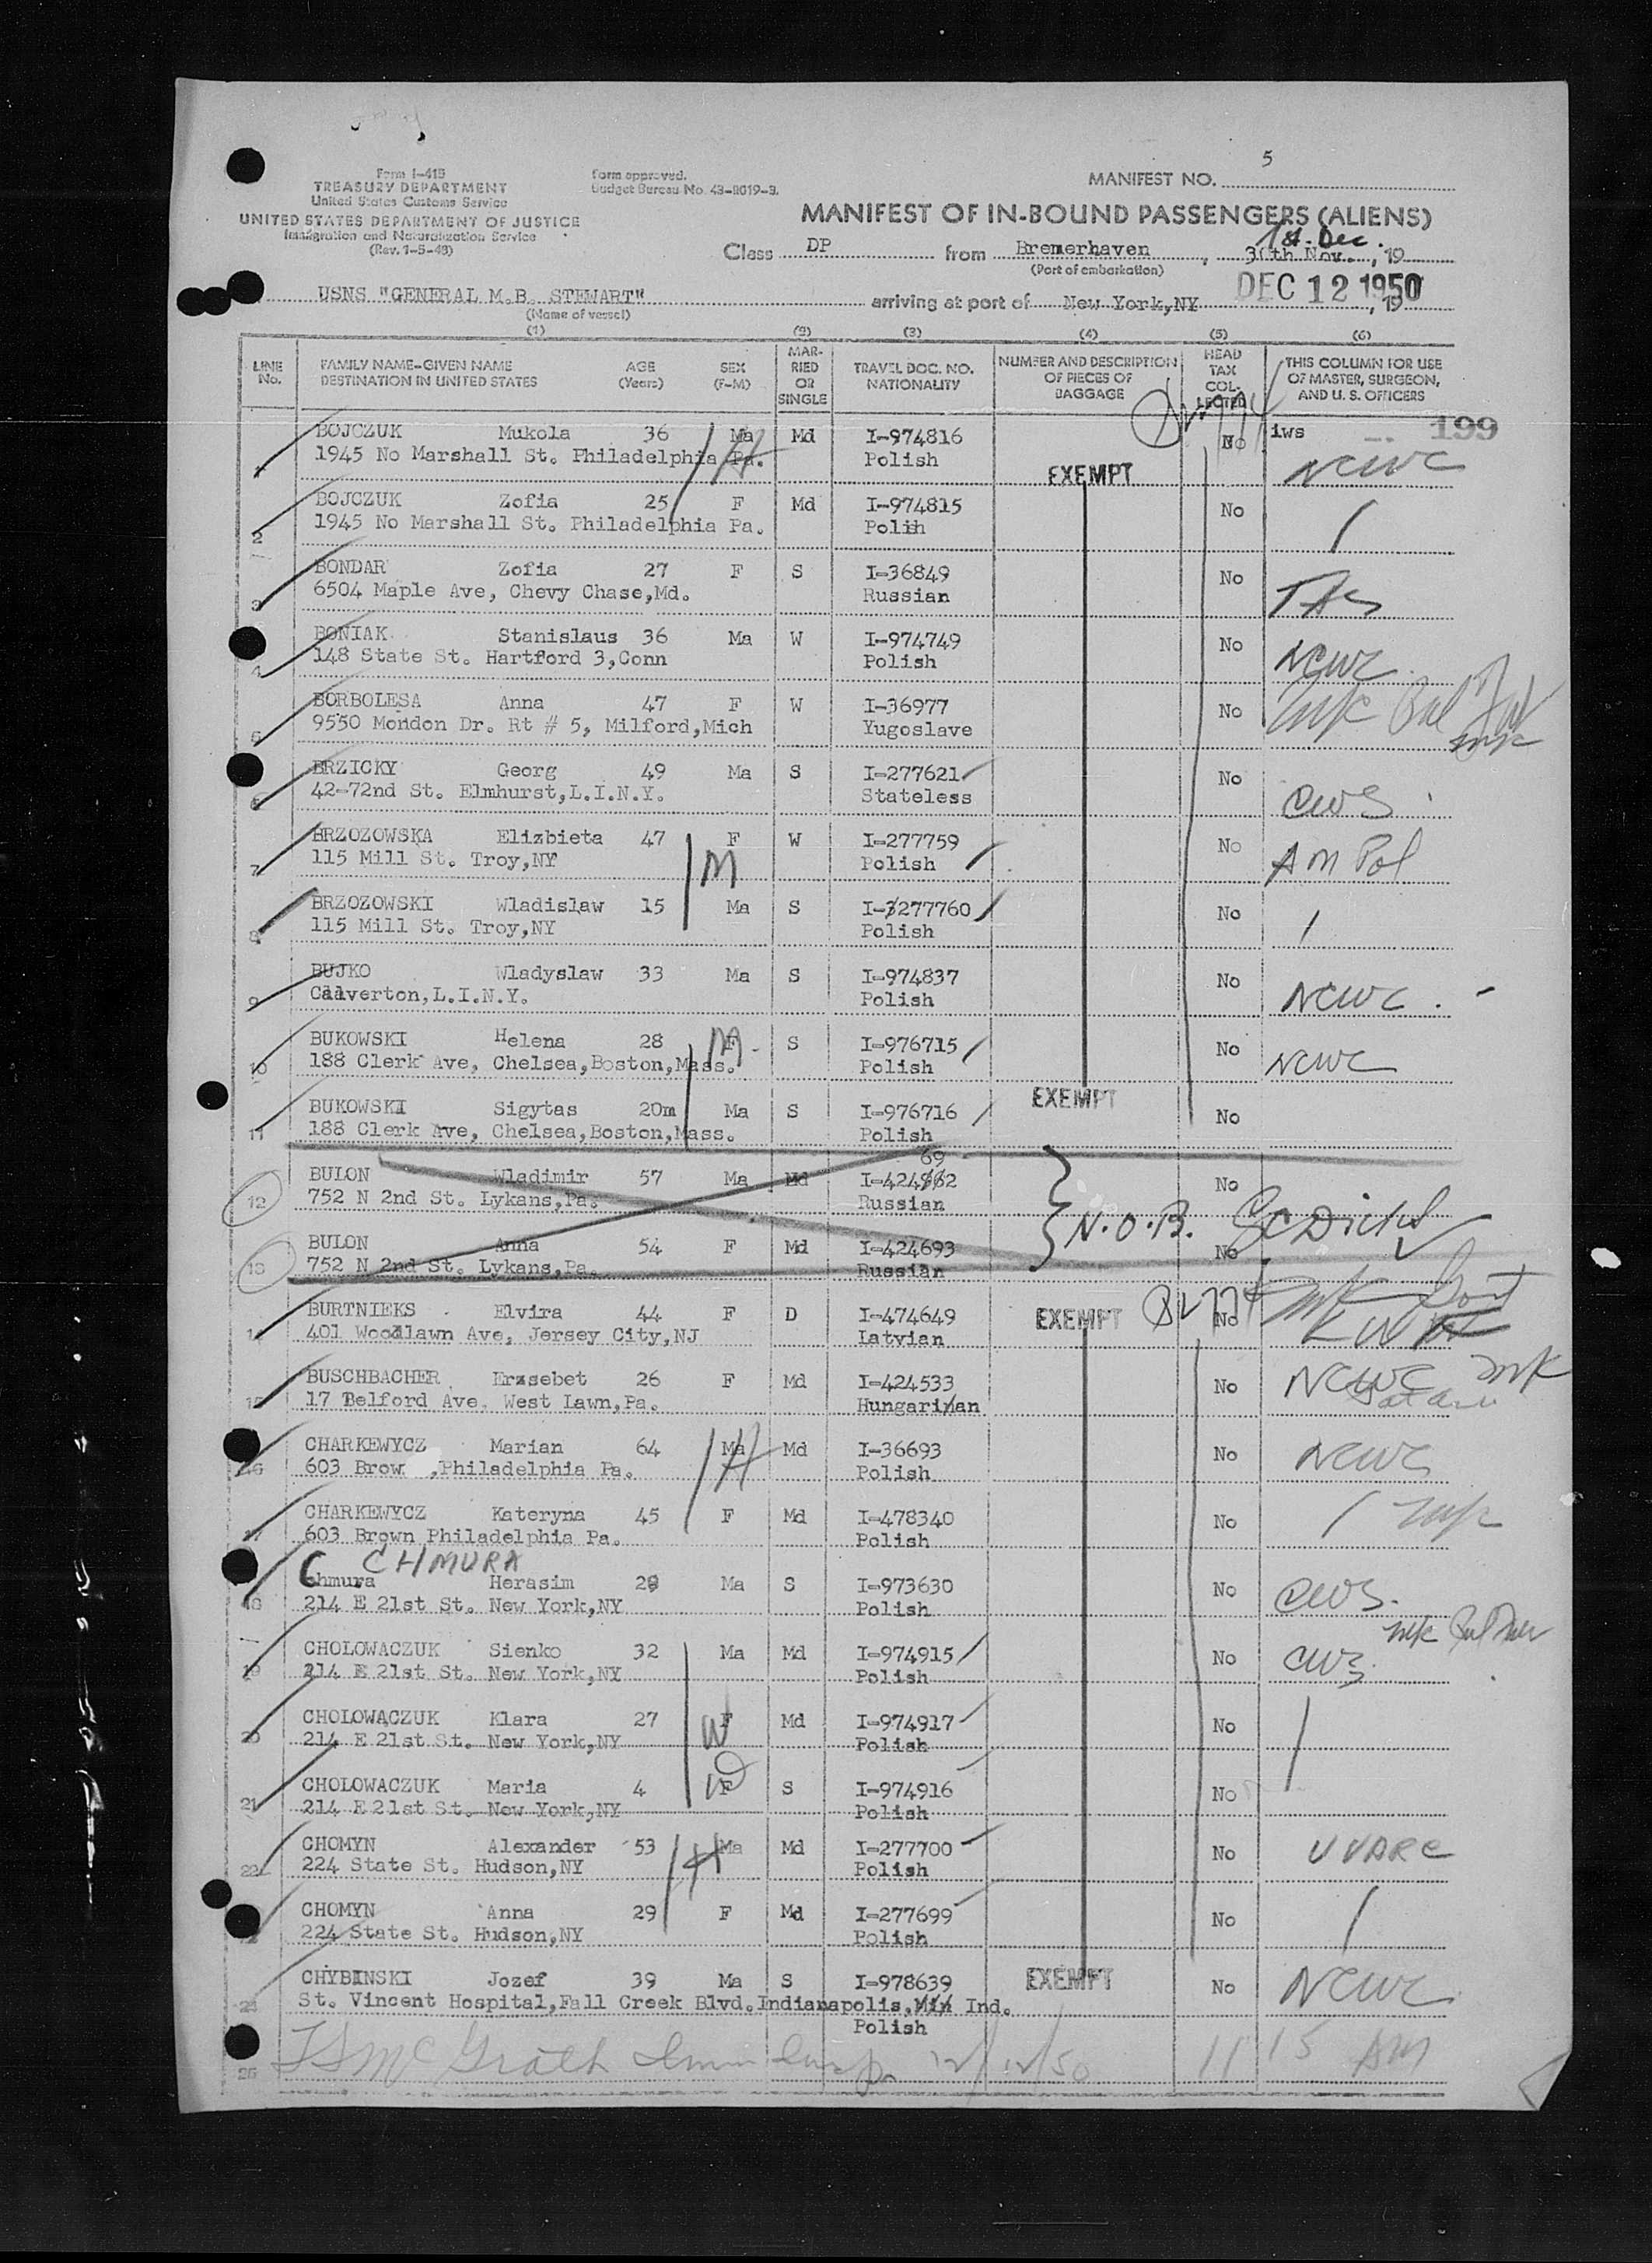 5
Form I-415
TREASURY DEPARTMENT
United States Customs Service
UNITED STATES DEPARTMENT OF JUSTICE
Immigration and Naturalization Service
(Rev. 1-5-48)
Form approved.
Budget Bureau No. 43-R019-3.
MANIFEST NO.
MANIFEST OF IN-BOUND PASSENGERS (ALIENS)
1st Dec.
Class DP from Bremerhaven, 30th Nov., 19
(Port of embarkation)
DEC 12 1950
USNS "GENERAL M.B. STEWART" arriving at port of New York,NY, 19
(Name of vessel)
(1) (2) (3) (4) (5) (6)
LINE No. FAMILY NAME-GIVEN NAME DESTINATION IN UNITED STATES AGE (Years) SEX (F-M) MARRIED OR SINGLE TRAVEL DOC. NO. NATIONALITY NUMBER AND DESCRIPTION OF PIECES OF BAGGAGE HEAD TAX COLLECTED THIS COLUMN FOR USE OF MASTER, SURGEON, AND U. S. OFFICERS
199
BOJCZUK Mukola 36 Ma Md I-974816 No iws
1 1945 No Marshall St. Philadelphia Pa. Polish EXEMPT NCWC
BOJCZUK Zofia 25 F Md I-974815 No
2 1945 No Marshall St. Philadelphia Pa. Polih
BONDAR Zofia 27 F S I-36849 No
3 6504 Maple Ave, Chevy Chase,Md. Russian
BONIAK Stanislaus 36 Ma W I-974749 No
4 148 State St. Hartford 3,Conn Polish NCWC
BORBOLESA Anna 47 F W I-36977 No
5 9550 Mondon Dr. Rt # 5, Milford,Mich Yugoslave
BRZICKY Georg 49 Ma S I-277621 No
6 42-72nd St. Elmhurst,L.I.N.Y. Stateless CWS
BRZOZOWSKA Elizbieta 47 F W I-277759 No
7 115 Mill St. Troy,NY M Polish Am Pol
BRZOZOWSKI Wladislaw 15 Ma S I-277760 No
8 115 Mill St. Troy,NY Polish
BUJKO Wladyslaw 33 Ma S I-974837 No
9 Calverton,L.I.N.Y. Polish NCWC
BUKOWSKI Helena 28 F M S I-976715 No
10 188 Clerk Ave, Chelsea,Boston,Mass. Polish NCWC
EXEMPT
BUKOWSKI Sigytas 20m Ma S I-976716 No
11 188 Clerk Ave, Chelsea,Boston,Mass. Polish
69
BULON Wladimir 57 Ma Md I-424962 No
12 752 N 2nd St. Lykans,Pa. Russian
N.O.B.
BULON Anna 54 F Md I-424693 No
13 752 N 2nd St. Lykans,Pa. Russian
BURTNIEKS Elvira 44 F D I-474649 EXEMPT No
14 401 Woodlawn Ave, Jersey City,NJ Latvian
BUSCHBACHER Erzsebet 26 F Md I-424533 No NCWC
15 17 Belford Ave. West Lawn,Pa. Hungarian
CHARKEWYCZ Marian 64 Ma H Md I-36693 No NCWC
16 603 Brow ,Philadelphia Pa. Polish
CHARKEWYCZ Kateryna 45 F Md I-478340 No
17 603 Brown Philadelphia Pa. Polish
C CHMURA
Chmura Herasim 28 Ma S I-973630 No CWS.
18 214 E 21st St. New York,NY Polish
CHOLOWACZUK Sienko 32 Ma Md I-974915 No CWS
19 214 E 21st St. New York,NY Polish
CHOLOWACZUK Klara 27 F Md I-974917 No
20 214 E 21st St. New York,NY W Polish
CHOLOWACZUK Maria 4 F S I-974916 No
21 214 E 21st St. New York,NY W Polish
CHOMYN Alexander 53 Ma Md I-277700 No UUARC
22 224 State St. Hudson,NY H Polish
CHOMYN Anna 29 F Md I-277699 No
23 224 State St. Hudson,NY Polish
CHYBINSKI Jozef 39 Ma S I-978639 EXEMPT No NCWC
24 St. Vincent Hospital,Fall Creek Blvd.Indianapolis, Ind.
Polish
25 McGrath Imm Insp. 12/12/50 11 15 AM